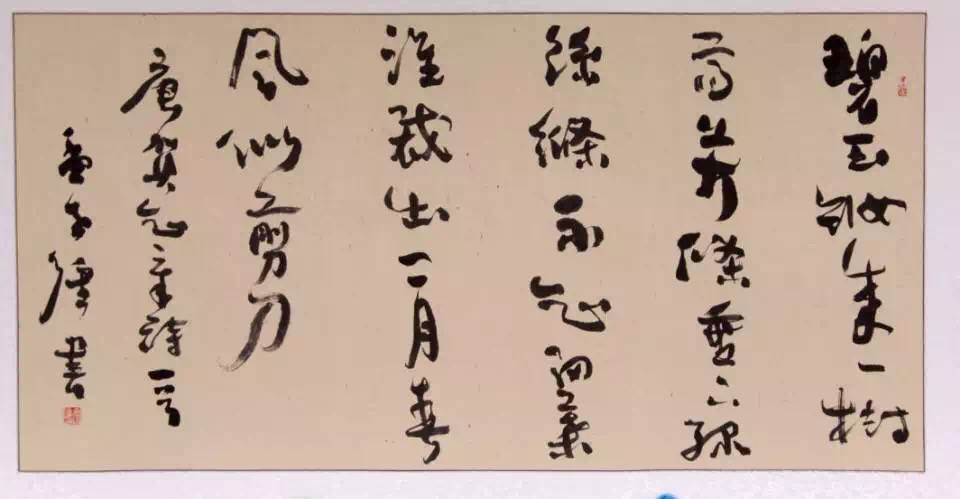 碧玉妝成一樹
高萬條垂下綠
絲縧不知細葉
誰裁出二月春
風似剪刀
唐賀知章詩一首
書